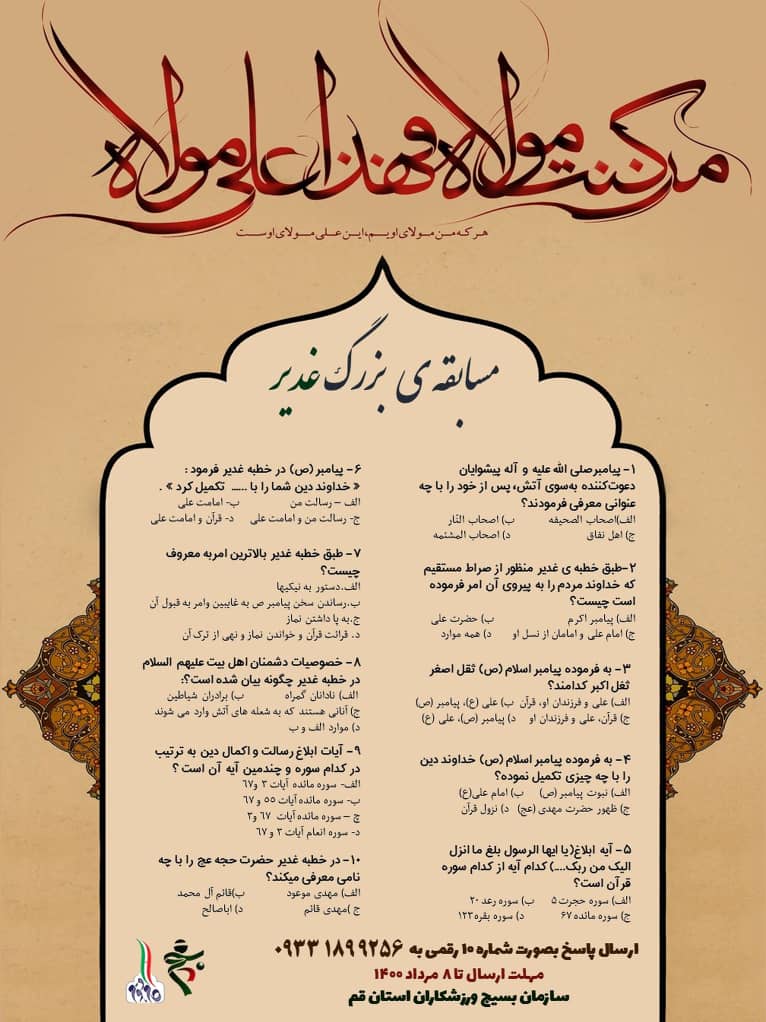 من کنت مولاه فهذا علی مولاه
هر که من مولای اویم، این علی مولای اوست
مسابقه ی بزرگ غدیر
۱- پیامبر صلی الله علیه و آله پیشوایان
دعوت‌کننده به‌سوی آتش، پس از خود را با چه
عنوانی معرفی فرمودند؟
الف) اصحاب الصحیفه ب) اصحاب النّار
ج) اهل نفاق د) اصحاب المشئمه
۲-طبق خطبه ی غدیر منظور از صراط مستقیم
که خداوند مردم را به پیروی آن امر فرموده
است چیست؟
الف) پیامبر اکرم ب) حضرت علی
ج) امام علی و امامان از نسل او د) همه موارد
۳- به فرموده پیامبر اسلام (ص) ثقل اصغر
ثغل اکبر کدامند؟
الف) علی و فرزندان او، قرآن ب) علی (ع)، پیامبر (ص)
ج) قرآن، علی و فرزندان او د) پیامبر (ص)، علی (ع)
۴- به فرموده پیامبر اسلام (ص) خداوند دین
را با چه چیزی تکمیل نموده؟
الف) نبوت پیامبر (ص) ب) امام علی(ع)
ج) ظهور حضرت مهدی (عج) د) نزول قرآن
۵- آیه ابلاغ(یا ایها الرسول بلغ ما انزل
الیک من ربک....) کدام آیه از کدام سوره
قرآن است؟
الف) سوره حجرت ۵ ب) سوره رعد ۲۰
ج) سوره مائده ۶۷ د) سوره بقره ۱۲۳
۶- پیامبر (ص) در خطبه غدیر فرمود :
« خداوند دین شما را با ..... تکمیل کرد » .
الف – رسالت من ب- امامت علی
ج- رسالت من و امامت علی د- قرآن و امامت علی
۷- طبق خطبه غدیر بالاترین امر به معروف
چیست؟
الف.دستور به نیکیها
ب.رساندن سخن پیامبر ص به غایبین وامر به قبول آن
ج.به پا داشتن نماز
د. قرائت قرآن و خواندن نماز و نهی از ترک آن
۸- خصوصیات دشمنان اهل بیت علیهم السلام
در خطبه غدیر چگونه بیان شده است؟:
الف) نادانان گمراه ب) برادران شیاطین
ج) آنانی هستند که به شعله های آتش وارد می شوند
د) موارد الف و ب
۹- آیات ابلاغ رسالت و اکمال دین به ترتیب
در کدام سوره و چندمین آیه آن است ؟
الف- سوره مائده آیات ۳ و۶۷
ب- سوره مائده آیات ۵۵ و ۶۷
چ – سوره مائده آیات ۶۷ و۳
د- سوره انعام آیات ۳ و ۶۷
۱۰- در خطبه غدیر حضرت حجه عج را با چه
نامی معرفی میکند؟
الف) مهدی موعود ب)قائم آل محمد
ج )مهدی قائم د) اباصالح
ارسال پاسخ بصورت شماره ۱۰ رقمی به ۰۹۳۳۱۸۹۹۲۵۶
مهلت ارسال تا ۸ مرداد ۱۴۰۰
سازمان بسیج ورزشکاران استان قم